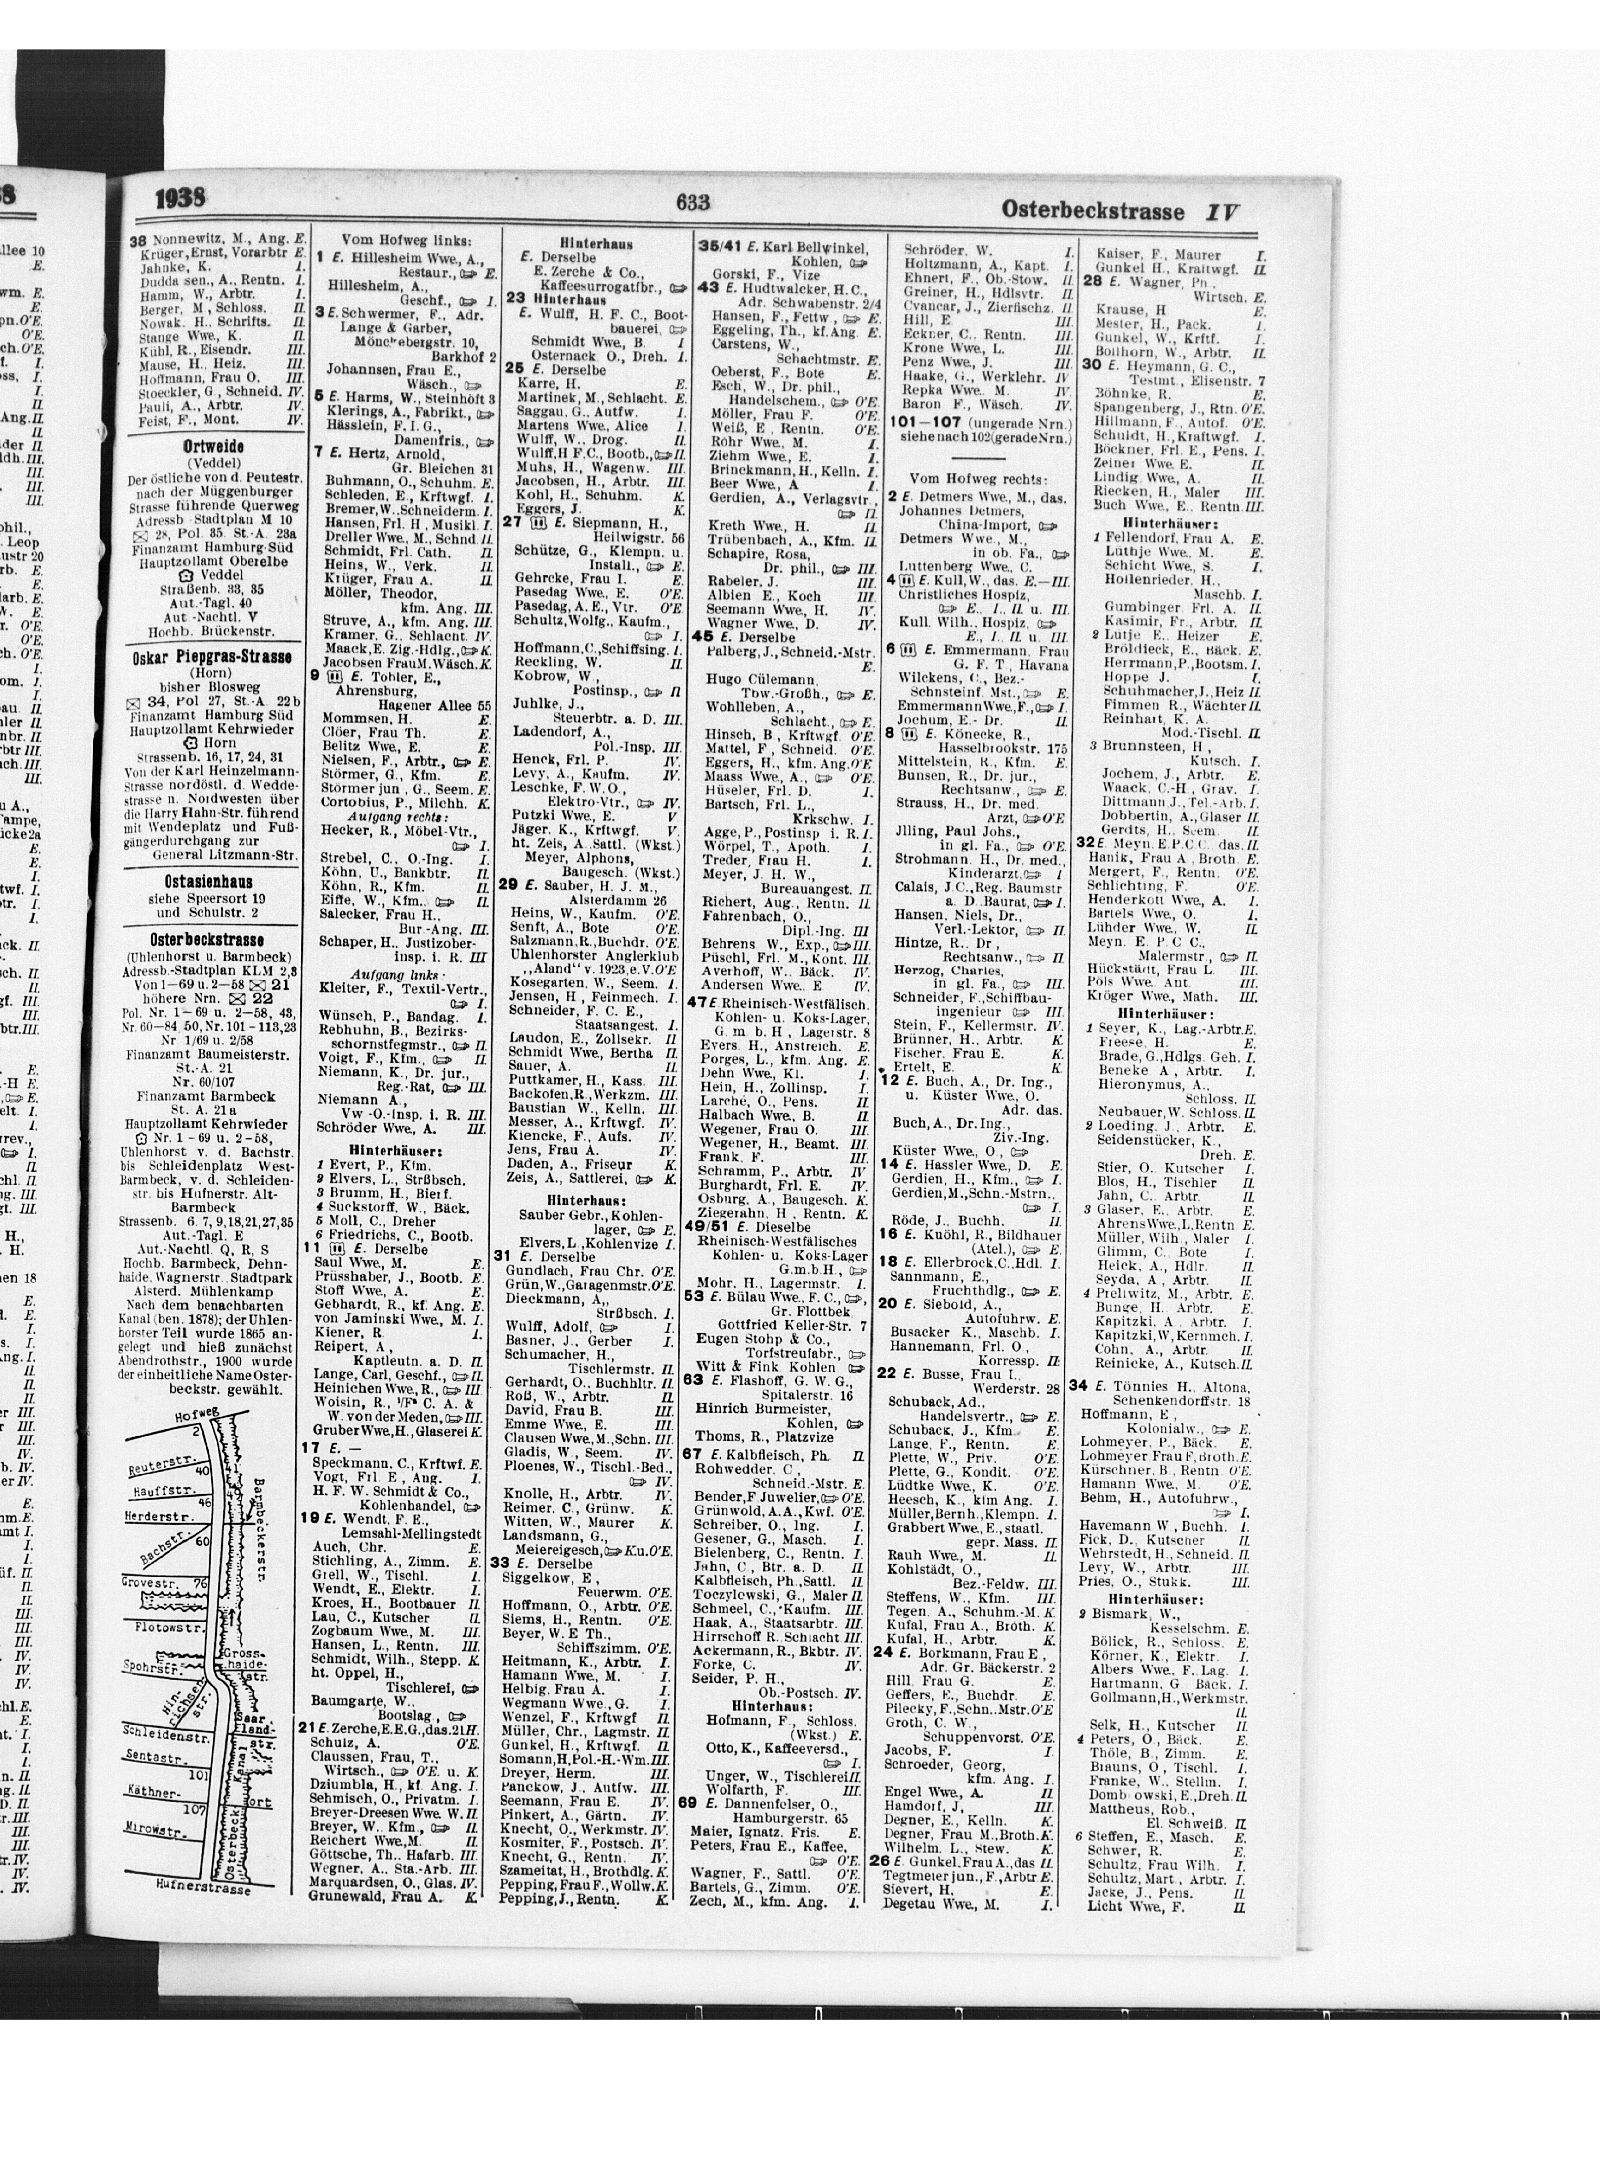 1938
633
Osterbeckstrasse IV
38 Nonnewitz, M., Ang. E.
Krüger, Ernst, Vorarbtr E.
Jahnke, K. I.
Duddasen, A., Rentn. I.
Hamm, W., Arbtr. I.
Berger, M., Schloss. II.
Nowak. H., Schrifts. II.
Stange Wwe., K. II.
Kübl, R., Eisendr. III.
Mause, H., Heiz. III.
Hoffmann, Frau O. III.
Stoeckler, G., Schneid. IV.
Pauli, A., Arbtr. IV.
Feist, F., Mont. IV.
Ortweide
(Veddel)
Der östliche von d. Peutestr.
nach der Müggenburger
Strasse führende Querweg
Adressb Stadtplan M 10
28, Pol. 35. St.-A. 23a
Finanzamt Hamburg-Süd
Hauptzollamt Oberelbe
Veddel
Straßenb. 33, 35
Aut.-Tagl. 40
Aut.-Nachtl. V
Hochb. Brückenstr.
Oskar Piepgras-Strasse
(Horn)
bisher Blosweg
34, Pol 27, St.-A. 22b
Finanzamt Hamburg Süd
Hauptzollamt Kehrwieder
Horn
Strassenb. 16, 17, 24, 31
Von der Karl Heinzelmann-
Strasse nordöstl. d. Wedde-
strasse n. Nordwesten über
die Harry Hahn-Str. führend
mit Wendeplatz und Fuß-
gängerdurchgang zur
General Litzmann-Str.
Ostasienhaus
siehe Speersort 19
und Schulstr. 2
Osterbeckstrasse
(Uhlenhorst u. Barmbeck)
Adressb.-Stadtplan KLM 2,3
Von 1—69 u. 2—58 21
höhere Nrn. 22
Pol. Nr. 1—69 u. 2—58, 43,
Nr. 60—84, 50, Nr. 101—113, 23
Nr 1/69 u. 2/58
Finanzamt Baumeisterstr.
St.-A. 21
Nr. 60/107
Finanzamt Barmbeck
St. A. 21a
Hauptzollamt Kehrwieder
Nr. 1-69 u. 2-58,
Uhlenhorst v. d. Bachstr.
bis Schleidenplatz West-
Barmbeck, v. d. Schleiden-
str. bis Hufnerstr. Alt-
Barmbeck
Strassenb. 6. 7, 9, 18, 21, 27, 35
Aut.-Tagl. E
Aut.-Nachtl. Q, R, S
Hochb. Barmbeck, Dehn-
haide, Wagnerstr. Stadtpark
Alsterd. Mühlenkamp
Nach dem benachbarten
Kanal (ben. 1878); der Uhlen-
horster Teil wurde 1865 an-
gelegt und hieß zunächst
Abendrothstr., 1900 wurde
der einheitliche Name Oster-
beckstr. gewählt.
Hofweg
2
Reuterstr.
40
41
Hauffstr.
46
Herderstr.
Bachstr.
60
Barmbeckerstr.
Grovestr. 76
Flotowstr.
Spohrstr.
Gross-
haide-
str.
Hin-
richsen-
str.
Schleidenstr.
Saar-
land-
str.
Sentastr.
101
Käthner-
ort
107
Mirowstr.
Osterbeck-Kanal
Hufnerstrasse
Vom Hofweg links:
1 E. Hillesheim Wwe., A.,
Restaur., E.
Hillesheim, A.,
Geschf., I.
3 E. Schwermer, F., Adr.
Lange & Garber,
Mönckebergstr. 10,
Barkhof 2
Johannsen, Frau E.,
Wäsch.,
5 E. Harms, W., Steinhöft 3
Klerings, A., Fabrikt.,
Hässlein, F. I. G.,
Damenfris.,
7 E. Hertz, Arnold,
Gr. Bleichen 31
Buhmann, O., Schuhm. E.
Schleden, E., Krftwgf. I.
Bremer, W., Schneiderm. I.
Hansen, Frl. H., Musikl. I.
Dreller Wwe., M., Schnd. II.
Schmidt, Frl. Cath. II.
Heins, W., Verk. II.
Krüger, Frau A. II.
Möller, Theodor,
kfm. Ang. III.
Struve, A., kfm. Ang. III.
Kramer, G., Schlacht. IV.
Maack, E. Zig.-Hdlg., K.
Jacobsen Frau M. Wäsch. K.
9 E. Tobler, E.,
Ahrensburg,
Hagener Allee 55
Mommsen, H. E.
Clöer, Frau Th. E.
Belitz Wwe., E. E.
Nielsen, F., Arbtr., E.
Störmer, G., Kfm. E.
Störmer jun., G., Seem. E.
Cortobius, P., Milchh. K.
Aufgang rechts:
Hecker, R., Möbel-Vtr.,
I.
Strebel, C., O.-Ing. I.
Köhn, U., Bankbtr. II.
Köhn, R., Kfm. II.
Eiffe, W., Kfm., II.
Salecker, Frau H.,
Bur.-Ang. III.
Schaper, H., Justizober-
insp. i. R. III
Aufgang links:
Kleiter, F., Textil-Vertr.,
I.
Wünsch, P., Bandag. I.
Rebhuhn, B., Bezirks-
schornstfegmstr., II.
Voigt, F., Kfm., II.
Niemann, K., Dr. jur.,
Reg.-Rat, III.
Niemann A.,
Vw-O.-Insp. i. R. III.
Schröder Wwe., A. III.
Hinterhäuser:
1 Evert, P., Kfm.
2 Elvers, L., Strßbsch.
3 Brumm, H., Bierf.
4 Suckstorff, W., Bäck.
5 Moll, C., Dreher
6 Friedrichs, C., Bootb.
11 E. Derselbe
Saul Wwe., M. E.
Prüsshaber, J., Bootb. E.
Stoff Wwe., A. E.
Gebhardt, R., kf. Ang. E.
von Jaminski Wwe., M. I.
Kiener, R I.
Reipert, A.,
Kaptleutn. a. D. II.
Lange, Carl, Geschf., II.
Heinichen Wwe., R., III
Woisin, R., i/Fa C. A. &
W. von der Meden, III.
Gruber Wwe., H., Glaserei K.
17 E. —
Speckmann, C., Krftwf. E.
Vogt, Frl. E., Ang. I.
H. F. W. Schmidt & Co.,
Kohlenhandel,
19 E. Wendt, F. E.,
Lemsahl-Mellingstedt
Auch, Chr. E.
Stichling, A., Zimm. E.
Grell, W., Tischl. I.
Wendt, E., Elektr. I.
Kroes, H., Bootbauer II.
Lau, C., Kutscher II.
Zogbaum Wwe., M. III.
Hansen, L., Rentn. III.
Schmidt, Wilh., Stepp. K.
ht. Oppel, H.,
Tischlerei,
Baumgarte, W.,
Bootslag.,
21 E. Zerche, E.E.G., das. 21 H.
Schulz, A. O'E.
Claussen, Frau, T.,
Wirtsch., O'E. u. K.
Dziumbla, H., kf. Ang. I.
Sehmisch, O., Privatm. I.
Breyer-Dreesen Wwe. W. II.
Breyer, W., Kfm., II.
Reichert Wwe., M. II.
Göttsche, Th., Hafarb. III.
Wegner, A., Sta.-Arb. III.
Marquardsen, O., Glas. IV.
Grunewald, Frau A. K.
Hinterhaus
E. Derselbe
E. Zerche & Co.,
Kaffeesurrogatfbr.,
23 Hinterhaus
E. Wulff, H. F. C., Boot-
bauerei,
Schmidt Wwe., B. I
Osternack O., Dreh. I.
25 E. Derselbe
Karre, H. E.
Martinek, M., Schlacht. E.
Saggau, G., Autfw. I.
Martens Wwe., Alice I.
Wulff, W., Drog. II.
Wulff, H F.C., Bootb., II.
Muhs, H., Wagenw. III.
Jacobsen, H., Arbtr. III.
Kohl, H., Schuhm. K.
Eggers, J. K.
27 E. Siepmann, H.,
Heilwigstr. 56
Schütze, G., Klempn. u.
Install., E.
Gehrcke, Frau I. E.
Pasedag Wwe., E. O'E.
Pasedag, A. E., Vtr. O'E
Schultz, Wolfg., Kaufm.,
I.
Hoffmann, C., Schiffsing. I.
Reckling, W. II.
Kobrow, W.,
Postinsp., II
Juhlke, J.,
Steuerbtr. a. D. III.
Ladendorf, A.,
Pol.-Insp. III.
Henck, Frl. P. IV.
Levy, A., Kaufm. IV.
Leschke, F. W. O.,
Elektro-Vtr., IV.
Putzki Wwe., E. V
Jäger. K., Krftwgf. V.
ht. Zeis, A., Sattl. (Wkst.)
Meyer, Alphons,
Baugesch. (Wkst.)
29 E. Sauber, H. J. M.,
Alsterdamm 26
Heins, W., Kaufm. O'E.
Senft, A., Bote O'E.
Salzmann, R., Buchdr. O'E.
Uhlenhorster Anglerklub
„Aland“ v. 1923, e.V. O'E
Kosegarten, W., Seem. I.
Jensen, H., Feinmech. I.
Schneider, F. C. E.,
Staatsangest. I.
Laudon, E., Zollsekr. II
Schmidt Wwe., Bertha II.
Sauer, A. II.
Puttkamer, H., Kass. III.
Backofen, R., Werkzm. III.
Baustian W., Kelln. III.
Messer, A., Krftwgf. IV.
Kiencke, F., Aufs. IV.
Jens, Frau A. IV.
Daden, A., Friseur K.
Zeis, A., Sattlerei, K.
Hinterhaus:
Sauber Gebr., Kohlen-
lager, E.
Elvers, L., Kohlenvize I.
31 E. Derselbe
Gundlach, Frau Chr. O'E.
Grün, W., Garagenmstr. O'E.
Dieckmann, A.,
Strßbsch. I.
Wulff, Adolf, I.
Basner, J., Gerber I.
Schumacher, H.,
Tischlermstr. II.
Gerhardt, O., Buchhltr. II.
Roß, W., Arbtr. II.
David, Frau B. III.
Emme Wwe., E. III.
Clausen Wwe., M., Schn. III.
Gladis, W., Seem. IV.
Ploenes, W., Tischl.-Bed.,
IV.
Knolle, H., Arbtr. IV.
Reimer, C., Grünw. K.
Witten, W., Maurer K.
Landsmann, G.,
Meiereigesch., K. u. O'E.
33 E. Derselbe
Siggelkow, E.,
Feuerwm. O'E.
Hoffmann, O., Arbtr. O'E.
Siems, H., Rentn. O'E.
Beyer, W. E Th.,
Schiffszimm. O'E.
Heitmann, K., Arbtr. I.
Hamann Wwe., M. I.
Helbig, Frau A. I.
Wegmann Wwe., G. I.
Wenzel, F., Krftwgf II.
Müller, Chr., Lagmstr. II.
Gunkel, H., Krftwgf. II.
Somann, H, Pol.-H.-Wm. III.
Dreyer, Herm. III.
Panckow, J., Autfw. III.
Seemann, Frau E. IV.
Pinkert, A., Gärtn. IV.
Knecht, O., Werkmstr. IV.
Kosmiter, F., Postsch. IV.
Knecht, G., Rentn. IV.
Szameitat, H., Brothdlg. K.
Pepping, Frau F., Wollw. K.
Pepping, J., Rentn. K.
35/41 E. Karl Bellwinkel,
Kohlen,
Gorski, F., Vize
43 E. Hudtwalcker, H. C.,
Adr. Schwabenstr. 2/4
Hansen, F., Fettw., E.
Eggeling, Th., kf. Ang. E.
Carstens, W.,
Schachtmstr. E.
Oeberst, F., Bote E.
Esch, W., Dr. phil.,
Handelschem., O'E.
Möller, Frau F. O'E.
Weiß, E., Rentn. O'E.
Röhr Wwe., M. I.
Ziehm Wwe., E. I.
Brinckmann, H., Kelln. I.
Beer Wwe., A I.
Gerdien, A., Verlagsvtr.,
II.
Kreth Wwe., H. II.
Trübenbach, A., Kfm. II.
Schapire, Rosa,
Dr. phil., III.
Rabeler, J. III.
Albien E., Koch III.
Seemann Wwe., H. IV.
Wagner Wwe., D. IV.
45 E. Derselbe
Palberg, J., Schneid.-Mstr.
E.
Hugo Cülemann,
Tbw.-Großh., E.
Wohlleben, A.,
Schlacht., E.
Hinsch, B., Krftwgf. O'E.
Mattel, F., Schneid. O'E.
Eggers, H., kfm. Ang. O'E
Maass Wwe., A., O'E.
Hüseler, Frl. D. I.
Bartsch, Frl. L.,
Krkschw. I.
Agge, P., Postinsp i. R. I.
Wörpel, T., Apoth. I.
Treder, Frau H. I.
Meyer, J. H. W.,
Bureauangest. II.
Richert, Aug., Rentn. II.
Fahrenbach, O.,
Dipl.-Ing. III
Behrens W., Exp., III.
Püschl, Frl. M., Kont. III.
Averhoff, W., Bäck. IV.
Andersen Wwe., E IV.
47 E. Rheinisch-Westfälisch.
Kohlen- u. Koks-Lager,
G. m. b. H., Lagerstr. 8
Evers, H., Anstreich. E.
Porges, L., kfm. Ang. E.
Dehn Wwe., Kl. I.
Hein, H., Zollinsp. I.
Larché, O., Pens. II.
Halbach Wwe., B. II.
Wegener, Frau O. III.
Wegener, H., Beamt. III.
Frank, F. III.
Schramm, P., Arbtr. IV
Burghardt, Frl. E. IV.
Osburg, A., Baugesch. K.
Ziegerahn, H., Rentn. K.
49/51 E. Dieselbe
Rheinisch-Westfälisches
Kohlen- u. Koks-Lager
G.m.b.H.,
Mohr, H., Lagermstr. I.
53 E. Bülau Wwe., F. C.,
Gr. Flottbek
Gottfried Keller-Str. 7
Eugen Stohp & Co.,
Torfstreufabr.,
Witt & Fink, Kohlen
63 E. Flashoff, G. W. G.,
Spitalerstr. 16
Hinrich Burmeister,
Kohlen,
Thoms, R., Platzvize
67 E. Kalbfleisch, Ph. II.
Rohwedder, C.,
Schneid.-Mstr. E.
Bender, F Juwelier, O'E.
Grünwold, A.A., Kwf. O'E.
Schreiber, O., Ing. I.
Gesener, G., Masch. I.
Bielenberg, C., Rentn. I.
Jahn, C., Btr. a. D. II.
Kalbfleisch, Ph., Sattl. II.
Toczylowski, G., Maler II.
Schmeel, C., Kaufm. III.
Haak, A., Staatsarbtr. III.
Hirrschoff R. Schlacht III.
Ackermann, R., Bkbtr. IV.
Forke, C. IV.
Seider, P. H.,
Ob.-Postsch. IV.
Hinterhaus:
Hofmann, F., Schloss.
(Wkst.) E.
Otto, K., Kaffeeversd.,
I.
Unger, W., Tischlerei II.
Wolfarth, F. III.
69 E. Dannenfelser, O.,
Hamburgerstr. 65
Maier, Ignatz, Fris. E.
Peters, Frau E., Kaffee,
O'E.
Wagner, F., Sattl. O'E.
Bartels, G., Zimm. O'E.
Zech, M., kfm. Ang. I.
Schröder, W. I.
Holtzmann, A., Kapt. I.
Ehnert, F., Ob.-Stow. II.
Greiner, H., Hdlsvtr. II.
Cvancar, J., Zierfischz. II.
Hill, E III.
Eckner, C., Rentn. III.
Krone Wwe., L. III.
Penz Wwe., J. III.
Haake, G., Werklehr. IV
Repka Wwe., M. IV.
Baron F., Wäsch. IV.
101—107 (ungerade Nrn.)
siehe nach 102 (gerade Nrn.)
Vom Hofweg rechts:
2 E. Detmers Wwe., M., das.
Johannes Detmers,
China-Import,
Detmers Wwe., M.,
in ob. Fa.,
Luttenberg Wwe., C.
4 E. Kull, W., das. E.—III.
Christliches Hospiz,
E., I., II. u. III.
Kull, Wilh., Hospiz,
E., I., II. u. III.
6 E. Emmermann, Frau
G. F. T., Havana
Wilckens, C., Bez.-
Schnsteinf. Mst., E.
Emmermann Wwe., F., I.
Jochum, E.- Dr. II.
8 E. Könecke, R.,
Hasselbrookstr. 175
Mittelstein, R., Kfm. E.
Bunsen, R., Dr. jur.,
Rechtsanw., E.
Strauss, H., Dr. med.
Arzt, O'E
Jlling, Paul Johs.,
in gl. Fa., O'E.
Strohmann, H., Dr. med.,
Kinderarzt, I
Calais, J.C., Reg. Baumstr
a. D. Baurat, I.
Hansen, Niels, Dr.,
Verl.-Lektor, II.
Hintze, R., Dr.,
Rechtsanw., II.
Herzog, Charles,
in gl. Fa., III.
Schneider, F., Schiffbau-
ingenieur III.
Stein, F., Kellermstr. IV.
Brünner, H., Arbtr. K.
Fischer, Frau E. K.
Ertelt, E. K.
12 E. Buch, A., Dr. Ing.,
u. Küster Wwe., O.
Adr. das.
Buch, A., Dr. Ing.,
Ziv.-Ing.
Küster Wwe., O.,
14 E. Hassler Wwe., D. E.
Gerdien, H., Kfm., I.
Gerdien, M., Schn.-Mstrn.,
I.
Röde, J., Buchh. II.
16 E. Kuöhl, R., Bildhauer
(Atel.), E.
18 E. Ellerbrock, C., Hdl. I.
Sannmann, E.,
Fruchthdlg., E.
20 E. Siebold, A.,
Autofuhrw. E.
Busacker K., Maschb. I.
Hannemann, Frl. O.,
Korressp. II.
22 E. Busse, Frau I.,
Werderstr. 28
Schuback, Ad.,
Handelsvertr., E.
Schuback, J., Kfm E.
Lange, F., Rentn. E.
Plette, W., Priv. O'E.
Plette, G., Kondit. O'E.
Lüdtke Wwe., K. O'E.
Heesch, K., kfm Ang. I.
Müller, Bernh., Klempn. I.
Grabbert Wwe., E., staatl.
gepr. Mass. II.
Rauh Wwe., M. II.
Kohlstädt, O.,
Bez.-Feldw. III.
Steffens, W., Kfm. III.
Tegen, A., Schuhm.-M. K.
Kufal, Frau A., Broth. K.
Kufal, H., Arbtr. K.
24 E. Borkmann, Frau E.,
Adr. Gr. Bäckerstr. 2
Hill, Frau G. E.
Geffers, E., Buchdr. E.
Pilecky, F., Schn.. Mstr. O'E
Groth, C. W.,
Schuppenvorst. O'E.
Jacobs, F. I.
Schroeder, Georg,
kfm. Ang. I.
Engel Wwe., A. II.
Hamdorf, J, III.
Degner, E., Kelln. K.
Degner, Frau M., Broth. K.
Wilhelm, L., Stew. K.
26 E. Gunkel, Frau A., das II.
Tegtmeier jun., F., Arbtr E.
Sievert, H. E.
Degetau Wwe., M. I.
Kaiser, F., Maurer I.
Gunkel H., Kraftwgf. II.
28 E. Wagner, Ph.,
Wirtsch. E.
Krause, H E.
Mester, H., Pack. I.
Gunkel, W., Krftf. I.
Bollhorn, W., Arbtr. II.
30 E. Heymann, G. C.,
Testmt., Elisenstr. 7
Böhnke, R. E.
Spangenberg, J., Rtn. O'E.
Hillmann, F., Autof. O'E.
Schuldt, H., Kraftwgf. I.
Böckner, Frl. E., Pens. I.
Zeiner Wwe. E. II.
Lindig Wwe., A. II.
Riecken, H., Maler III
Buch Wwe., E., Rentn. III.
Hinterhäuser:
1 Fellendorf, Frau A. E.
Lüthje Wwe., M. E.
Schicht Wwe., S. I.
Hollenrieder, H.,
Maschb. I.
Gumbinger, Frl. A. II.
Kasimir, Fr., Arbtr. II.
2 Lütje E., Heizer E.
Bröldieck, E., Bäck. E.
Herrmann, P., Bootsm. I.
Hoppe J. I.
Schuhmacher, J., Heiz II.
Fimmen R., Wächter II.
Reinhart, K. A.
Mod.-Tischl. II.
3 Brunnsteen, H.,
Kutsch. I.
Jochem, J., Arbtr. E.
Waack, C.-H., Grav. I.
Dittmann J., Tel.-Arb. I.
Dobbertin, A., Glaser II.
Gerdts, H., Seem. II.
32 E. Meyn, E.P.C.C., das. II.
Hanik, Frau A., Broth. E.
Mergert, F., Rentn. O'E.
Schlichting, F. O'E.
Henderkott Wwe., A. I.
Bartels Wwe., O. I.
Lühder Wwe., W. II.
Meyn, E. P. C C.,
Malermstr., II.
Hückstädt, Frau L. III.
Pöls Wwe. Ant. III.
Kröger Wwe., Math. III.
Hinterhäuser:
1 Seyer, K., Lag.-Arbtr. E.
Freese, H. E.
Brade, G., Hdlgs. Geh. I.
Beneke A., Arbtr. I.
Hieronymus, A.,
Schloss. II.
Neubauer, W. Schloss. II.
2 Loeding, J., Arbtr. E.
Seidenstücker, K.,
Dreh. E.
Stier, O., Kutscher I
Blos, H., Tischler II.
Jahn, C., Arbtr. II.
3 Glaser, E., Arbtr. E.
Ahrens Wwe., L, Rentn E.
Müller, Wilh., Maler I.
Glimm, C., Bote I.
Heick, A., Hdlr. II.
Seyda, A., Arbtr. II.
4 Prellwitz, M., Arbtr. E.
Bunge, H., Arbtr. E.
Kapitzki, A., Arbtr. I.
Kapitzki, W, Kernmch. I.
Cohn, A., Arbtr. II.
Reinicke, A., Kutsch. II.
34 E. Tönnies H., Altona,
Schenkendorffstr. 18
Hoffmann, E.,
Kolonialw., E.
Lohmeyer, P., Bäck. E.
Lohmeyer Frau F, Broth. E.
Kürschner, B., Rentn. O'E.
Hamann Wwe., M. O'E.
Behm, H., Autofuhrw.,
I.
Havemann W., Buchh. I.
Fick, D., Kutscher II.
Wehrstedt, H., Schneid. II.
Levy, W., Arbtr. III.
Pries, O., Stukk. III.
Hinterhäuser:
2 Bismark, W.,
Kesselschm. E.
Bölick, R., Schloss. E.
Körner, K., Elektr. I.
Albers Wwe., F. Lag. I.
Hartmann, G. Bäck. I.
Gollmann, H., Werkmstr.
II.
Selk, H., Kutscher II.
4 Peters, O., Bäck. E.
Thöle, B., Zimm. E.
Brauns, O., Tischl. I.
Franke, W., Stellm. I.
Dombrowski, E., Dreh. II.
Mattheus, Rob.,
El. Schweiß. II.
6 Steffen, E., Masch. E.
Schwer, R. E.
Schultz, Frau Wilh. I.
Schultz, Mart., Arbtr. I.
Jacke, J., Pens. II.
Licht Wwe., F. II.